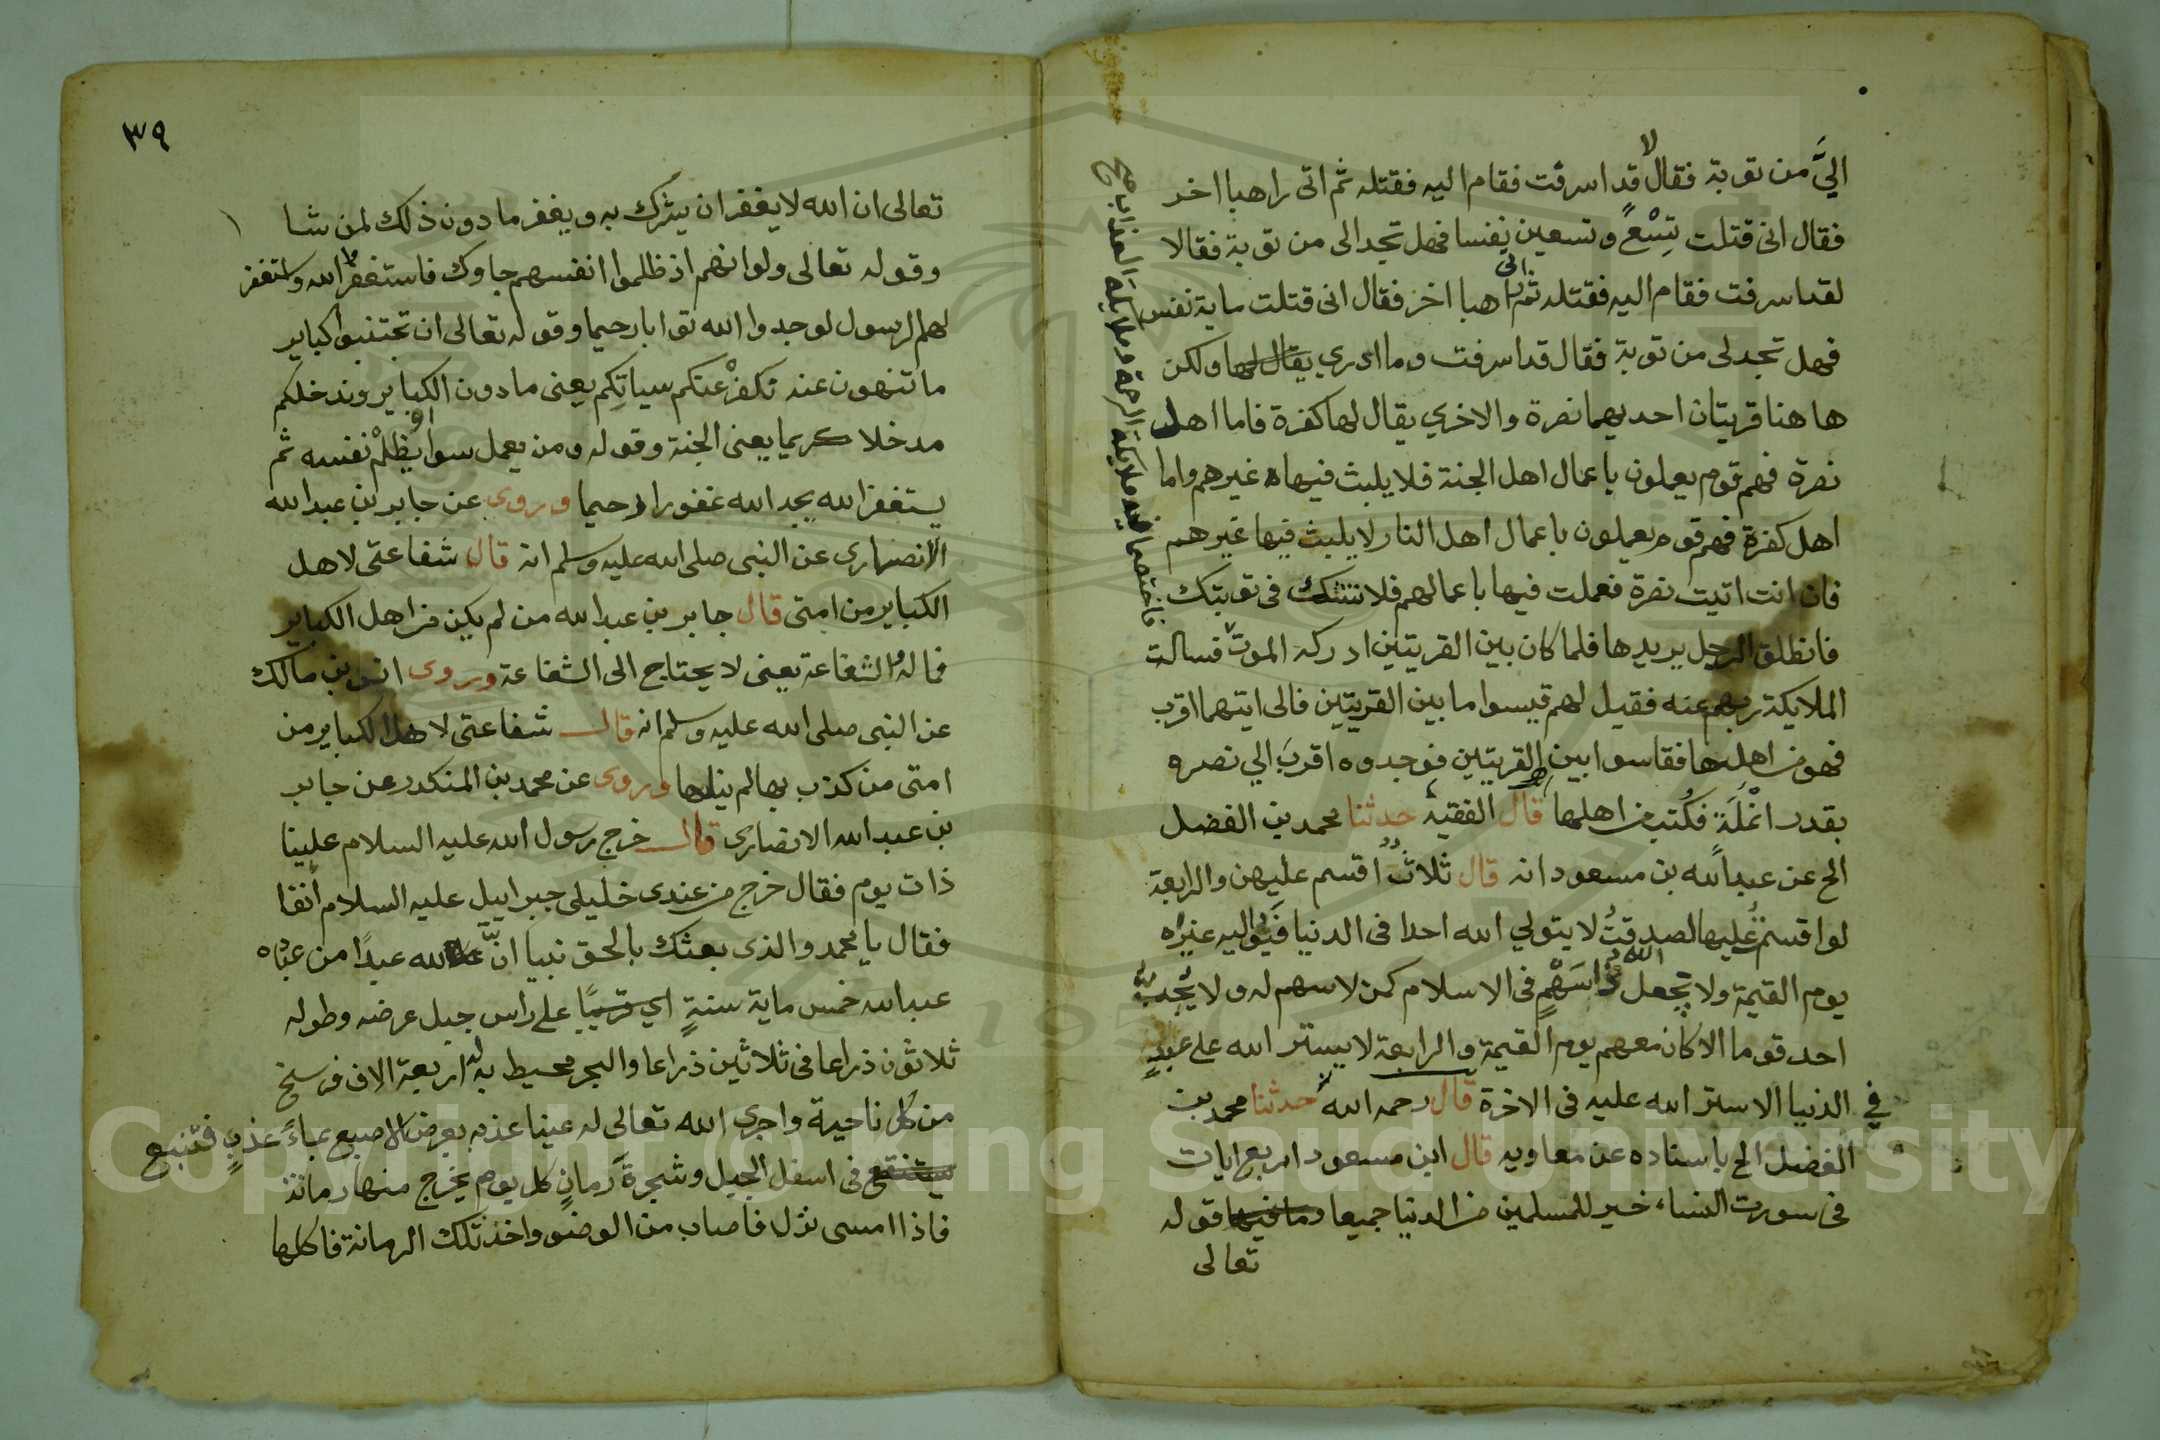 اليَّ من توبة فقال لا قد اسرفت فقام اليه فقتله ثم اتى راهبا اخر
فقال انى قتلت تِسْعٍ وتسعين نفسا فهل تجد الى من توبة فقالا
لقد اسرفت فقام اليه فقتله ثم اتى راهبا اخر فقال انى قتلت ماية نفس
فهل تجد لى من توبة فقال قد اسرفت وما ادري يقال لها ولكن
ها هنا قريتان احديهما نصرة والاخري يقال لها كفرة فاما اهل
نصرة فهم قوم يعملون باعمال اهل الجنة فلا يلبث فيهاه غيرهم واما
اهل كفرة فهم قوم يعملون باعمال اهل النار لا يلبث فيها غيرهم
فان انت اتيت نصرة فعملت فيها باعمالهم فلا تشك فى توبتك
فانطلق الرجل يريدها فلما كان بين القريتين ادركه الموت فسالت
الملايكة ربهم عنه فقيل لهم قيسوا ما بين القريتين فالى ايتهما اقرب
فهو من اهلها فقاسوا بين القريتين فوجدوه اقربَ الي نصره
بقدر انْمُلَة فكُتب من اهلها قال الفقيه حدثنا محمد بن الفضل
الح عن عبد الله بن مسعود انه قال ثلاثٌ اقسم عليهن والرابعة
لو اقسمتُ عليها لصدقتُ لا يتولي الله احدا فى الدنيا فيُوَلِّيه غيره
يوم القيمة ولا يجعل الله ذا سَهْمٍ فى الاسلام كمن لا سهم له ولا يُحِبُّ
احد قوما الا كان معهم يوم القيمة والرابعة لا يستر الله على عبدٍ
في الدنيا الا ستر الله عليه فى الاخرة قال رحمه الله حدثنا محمد بن
الفضل الح باسناده عن معاويه قال ابن مسعود اربع ايات
فى سورت النساء خير للمسلمين من الدنيا جميعا وما فيها قوله
تعالى
فاختصما فيه ملايكة الرحمة وملايكة العذاب صح
٣٩
تعالى ان الله لا يغفر ان يشرك به ويغفر ما دون ذلك لمن شا
وقوله تعالى ولو انهم اذ ظلموا انفسهم جاوك فاستغفروا الله واستغفر
لهم الرسول لوجدوا الله توابا رحيما وقوله تعالى ان تجتنبوا كباير
ما تنهون عنه نكفرْ عنكم سياتِكم يعنى ما دون الكباير وندخلكم
مدخلا كريما يعنى الجنة وقوله ومن يعمل سوا او يظلمْ نفسه ثم
يستغفر الله يجد الله غفورا رحيما وروى عن جابر بن عبد الله
الانصارى عن النبى صلى الله عليه وسلم انه قال شفاعتى لاهل
الكباير من امتى قال جابر بن عبد الله من لم يكن من اهل الكباير
فما له والشفاعة يعنى لا يحتاج الى الشفاعة وروى انس بن مالك
عن النبى صلى الله عليه وسلم انه قال شفاعتى لاهل الكباير من
امتى من كذب بها لم ينلها وروى عن محمد بن المنكدر عن جابر
بن عبد الله الانصارى قال خرج رسول الله عليه السلام علينا
ذات يوم فقال خرج من عندى خليلى جبراييل عليه السلام انفا
فقال يا محمد والذى بعثك بالحق نبيا انّ لله عبدًا من عباده
عبد الله خمس ماية سنةٍ اي قريبًا على راس جبل عرضه وطوله
ثلاثون ذراعا فى ثلاثين ذراعا والبحر محيط به اربعة الاف فرسخ
من كل ناحية واجري الله تعالى له عينا عذبه بعرض الاصبع بماءً عذبٍ فتنبع
يستنقع فى اسفل الجبل وشجرةَ رمانٍ كل يوم يخرج منها رمانة
فاذا امسى نزل فاصاب من الوضو واخذ تلك الرمانة فاكلها
Copyright © King Saud University